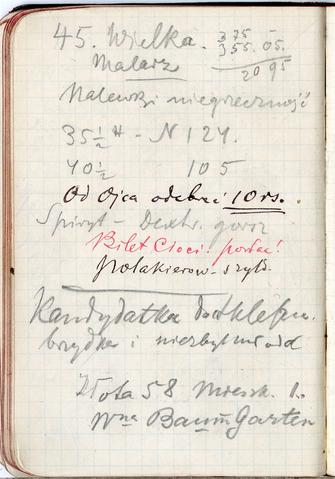 45. Wielka. 375
Malarz 355.05.
2095
Nalewki niegrzeczność
35½ H - N 124.
40½ 105
Od Ojca odebrać 10 rs.
Spiryt - Dextr. gorz
Bilet Cioci! posłać!
Polakierow - szyld.
Kandydatka do sklepu.
brzydka i niezbyt młoda
Złota 58 Mieszk. 1.
Wna Baumgarten